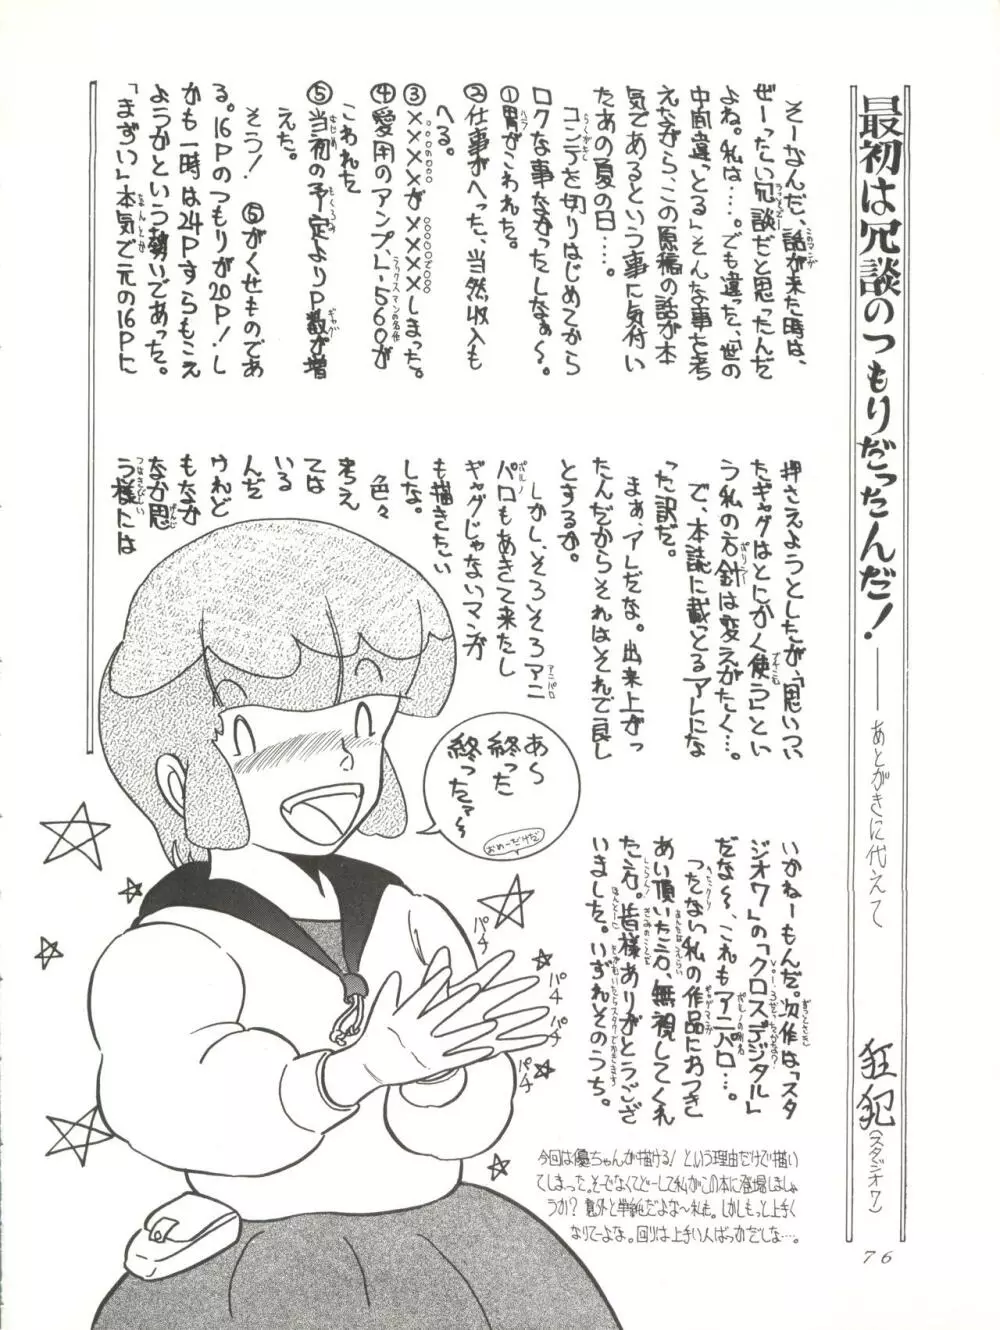 最初は冗談のつもりだったんだ！
――あとがきに代えて
狂犯
(スタジオ7)
そーなんだ、話が来た時は、
ぜーったい冗談だと思ったんだ
よね。私は…。でも違った、「世の
中間違っとる」そんな事を考
えながら、この原稿の話が本
気であるという事に気付い
たあの夏の日…。
コンテを切りはじめてから
ロクな事なかったしなぁ～。
①胃がこわれた。
②仕事がへった、当然収入も
へる。
③××××が××××しまった。
④愛用のアンプ、L-560が
こわれた
⑤当初の予定よりP数が増
えた。
そう！　⑤がくせものであ
る。16Pのつもりが20P！し
かも一時は24Pすらもこえ
ようかという勢いであった。
「まずい」本気で元の16Pに
押さえようとしたが、「思いつい
たギャグはとにかく使う」とい
う私の方針は変えがたく…。
で、本誌に載っとるアレにな
った訳だ。
まぁ、アレだな。出来上がっ
たんだからそれはそれで良し
とするか。
しかし、そろそろアニ
パロもあきて来たし
ギャグじゃないマンガ
も描きたい
しな。
色々
考え
ては
いる
んだ
けれど
もなか
なか思
う様には
いかねーもんだ。次作は「スタ
ジオ7」の「クロスデジタル」
だな～、これもアニパロ…。
つたない私の作品におつき
あい頂いた方、無視してくれ
た方。皆様ありがとうござ
いました。いずれそのうち。
あ～
終った
終ったァ～
おめーだけだ
パチ
パチ
パチ
パチ
パチ
今回は優ちゃんが描ける！という理由だけで描い
てしまった。そーでなくてどーして私がこの本に登場しましょ
うか？意外と単純だよな～私も。しかしもっと上手く
なりてーよな。回りは上手い人ばっかだしな…。
76